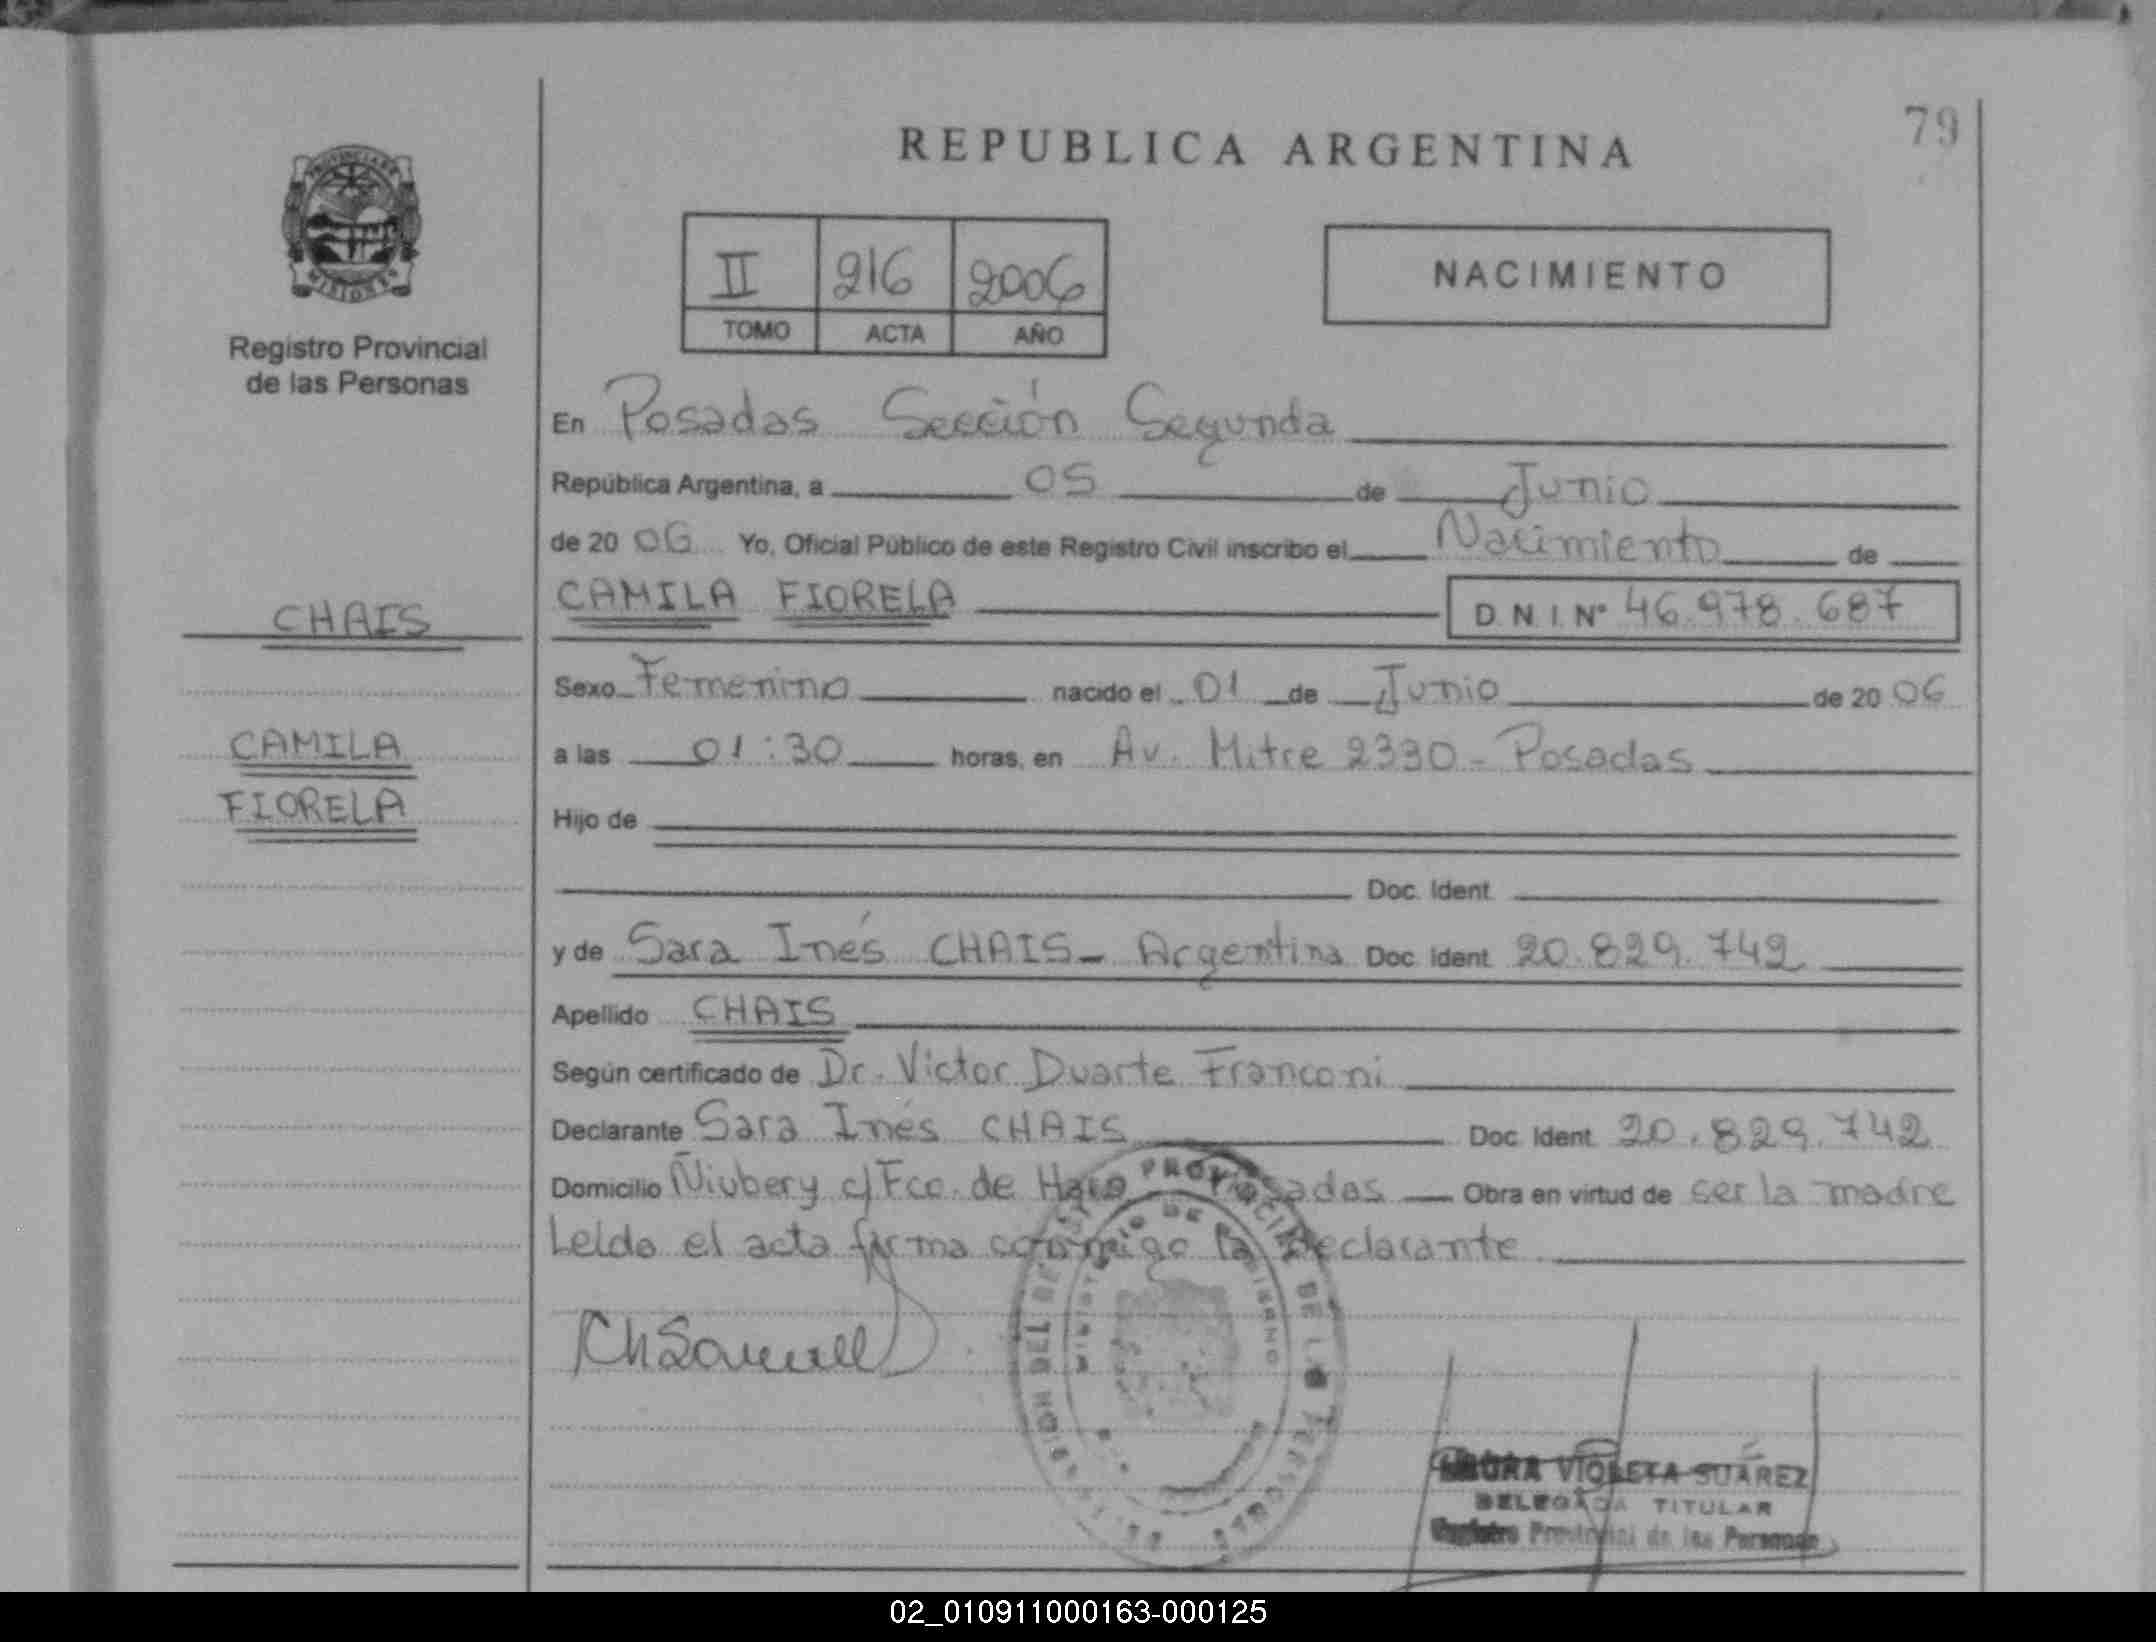 79
REPUBLICA ARGENTINA
PROVINCIA DE
MISIONES
II 216 2006
TOMO ACTA AÑO
NACIMIENTO
Registro Provincial
de las Personas
En Posadas Sección Segunda
República Argentina, a 05 de Junio
de 20 06 Yo, Oficial Público de este Registro Civil inscribo el Nacimiento de
CHAIS
CAMILA FIORELA D.N.I. N° 46.978.687
Sexo Femenino nacido el 01 de Junio de 20 06
CAMILA
a las 01:30 horas, en Av. Mitre 2330 - Posadas
FIORELA
Hijo de
Doc. Ident.
y de Sara Inés CHAIS - Argentina Doc. Ident. 20.829.742
Apellido CHAIS
Según certificado de Dr. Victor Duarte Franconi
Declarante Sara Inés CHAIS Doc. Ident. 20.829.742
Domicilio Ñiubery c/Fco. de Haro Posadas Obra en virtud de ser la madre
Leída el acta firma conmigo la declarante
VIOLETA SUÁREZ
DELEGADA TITULAR
Registro Provincial de las Personas
02_010911000163-000125